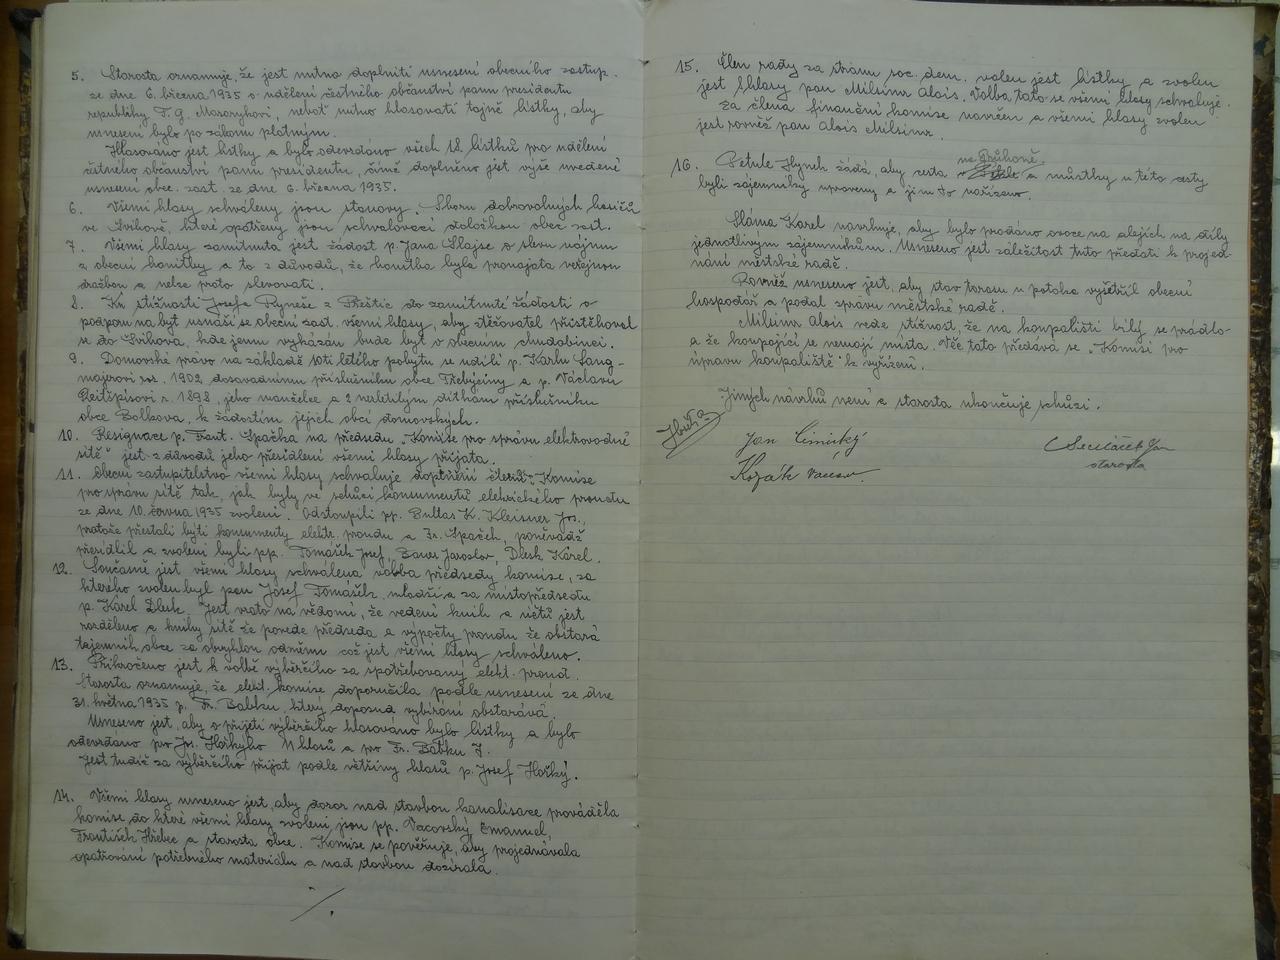 5. Starosta oznamuje, že jest nutno doplniti usnesení obecního zastup.
ze dne 6. března 1935 o udělení čestného občanství panu presidentu
republiky T. G. Masarykovi, neboť nutno hlasovati tajně lístky, aby
usnesení bylo po zákonu platným.
Hlasováno jest lístky a bylo odevzdáno všech 18 lístků pro udělení
čestného občanství panu presidentu, čímž doplněno jest výše uvedené
usnesení obec. zast. ze dne 6. března 1935.
6. Všemi hlasy schváleny jsou stanovy Sboru dobrovolných hasičů
ve Švihově, které opatřeny jsou schvalovací doložkou obec. zast.
7. Všemi hlasy zamítnuta jest žádost p. Jana Šlajse o slevu nájmu
z obecní honitby a to z důvodů, že honitba byla pronajata veřejnou
dražbou a nelze proto slevovati.
8. Ku stížnosti Josefa Ryneše z Přeštic do zamítnuté žádosti o
podporu na byt usnáší se obecní zast. všemi hlasy, aby stěžovatel přistěhoval
se do Švihova, kde jemu vykázán bude byt v obecním chudobinci.
9. Domovské právo na základě 10ti letého pobytu se udílí p. Karlu Lang-
majerovi roz. 1902 dosavadnímu příslušníku obce Třebýciny a p. Václavu
Reitšpisovi r. 1898, jeho manželce a 2 nezletilým dítkám příslušníku
obce Bolkova, k žádostím jejich obcí domovských.
10. Resignace p. Frant. Špačka na předsedu „Komise pro správu elektrovodné
sítě" jest z důvodů jeho přesídlení všemi hlasy přijata.
11. Obecní zastupitelstvo všemi hlasy schvaluje doplnění členů „Komise
pro správu sítě tak, jak byly ve schůzi konsumentů elektrického proudu
ze dne 10. června 1935 zvoleni. Odstoupili pp. Bultas K. Kleisner Jos.,
protože přestali býti konsumenty elektr. proudu a Fr. Špaček, poněvadž
přesídlil a zvoleni byli pp. Tomášek Josef, Bauer Jaroslav, Dlesk Karel.
12. Současně jest všemi hlasy schválena volba předsedy komise, za
kterého zvolen byl pan Josef Tomášek mladší a za místopředsedu
p. Karel Dlesk. Jest vzato na vědomí, že vedení knih a účtů jest
rozděleno a knihy sítě že povede předseda a výpočty proudu že obstará
tajemník obce za obvyklou odměnu což jest všemi hlasy schváleno.
13. Přikročeno jest k volbě výběrčího za spotřebovaný elekt. proud.
Starosta oznamuje, že elekt. komise doporučila podle usnesení ze dne
31. května 1935 p. Fr. Babku, který doposud vybírání obstarává.
Usneseno jest, aby o přijetí výběrčího hlasováno bylo lístky a bylo
odevzdáno pro Jos. Hořkýho 11 hlasů a pro Fr. Babku 7.
Jest tudíž za výběrčího přijat podle většiny hlasů p. Josef Hořký.
14. Všemi hlasy usneseno jest, aby dozor nad stavbou kanalisace prováděla
komise do které všemi hlasy zvoleni jsou pp. Vacovský Emanuel,
František Hřebec a starosta obce. Komise se pověřuje, aby projednávala
opatřování potřebného materiálu a nad stavbou dozírala.
./.
15. Člen rady za stranu soc. dem. volen jest lístky a zvolen
jest hlasy pan Milsimr Alois. Volba tato se všemi hlasy schvaluje.
Za člena finanční komise navržen a všemi hlasy zvolen
jest rovněž pan Alois Milsimr.
16. Petule Hynek žádá, aby cesta na Druhově a můstky u této cesty
byli zájemníky upraveny a jim to nařízeno.
Sláma Karel navrhuje, aby bylo prodáno ovoce na alejích na díly
jednotlivým zájemníkům. Usneseno jest záležitost tuto předati k projed-
nání městské radě.
Rovněž usneseno jest, aby stav tarasu u potoka vyšetřil obecní
hospodář a podal zprávu městské radě.
Milsimr Alois vede stížnost, že na koupališti bílý se prádlo
a že koupající se nemají místa. Věc tato předává se „Komisi pro
úpravu koupaliště" k vyřízení.
Jiných návrhů není a starosta ukončuje schůzi.
Kozák Václav
starosta